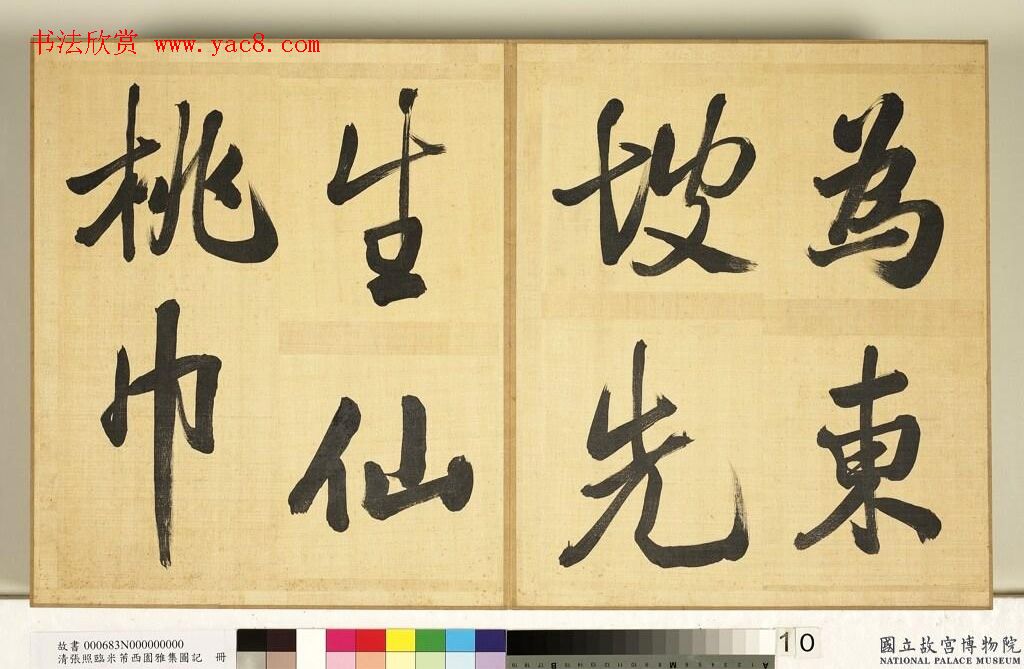 书法欣赏 www.yac8.com
為東
坡先
生仙
桃巾
故書 000683N000000000
清張照臨米芾西園雅集圖記 冊
10
國立故宮博物院
NATIONAL PALACE MUSEUM